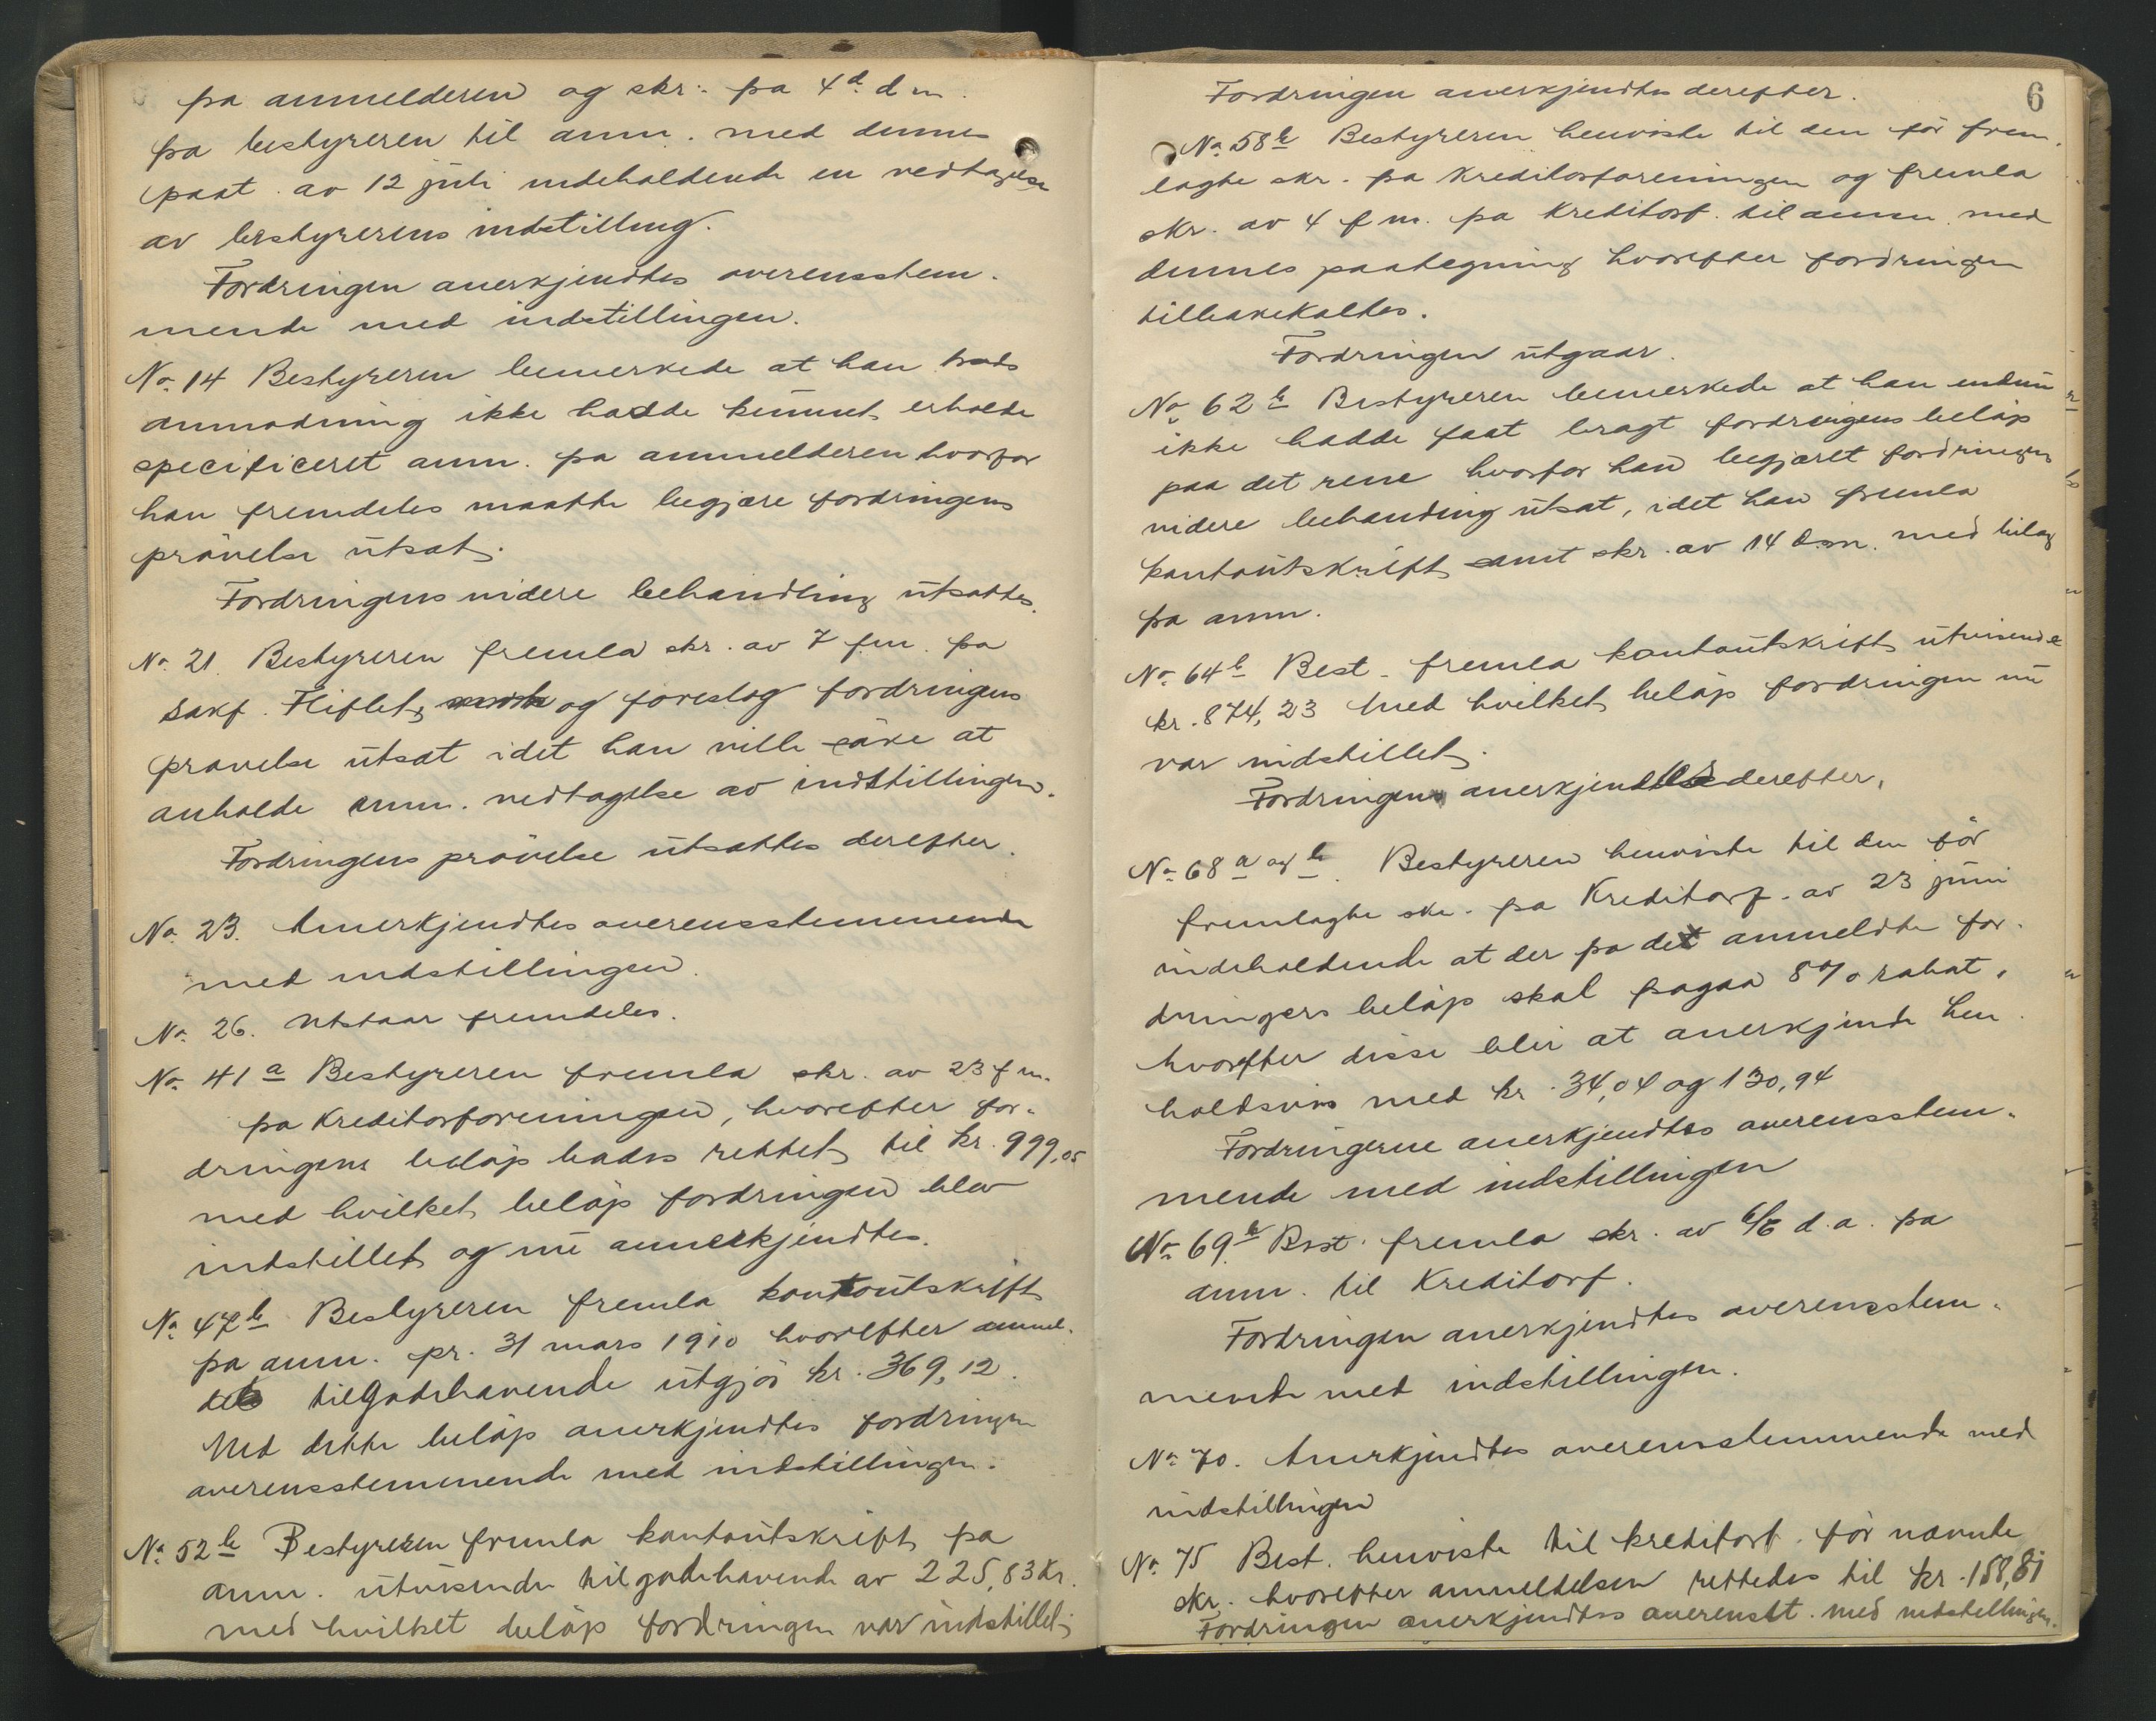 pa anmelderen og skr. pa 4d. d m.
pa bestyreren til anm. med dennes
paat. av 12 juli indeholdende en vedtagelse
av bestyrerens indstilling.
Fordringen anerkjendtes overensstem-
mende med indstillingen.
No. 14 Bestyreren bemerkede at han trods
anmodning ikke hadde kunnet erholde
specificeret anm. pa anmelderen hvorfor
han fremdeles maatte begjære fordringens
prövelse utsat.
Fordringens videre behandling utsattes.
No. 21. Bestyreren fremla skr. av 7 fm. pa
sakf. Fliflet, og foreslog fordringens
prövelse utsat idet han ville söke at
anholde anm. vedtagelse av indstillingen.
Fordringens prövelse utsattes derefter.
No. 23. Anerkjendtes overensstemmende
med indstillingen.
No. 26. Utstaar fremdeles.
No. 41 a Bestyreren fremla skr. av 23 f m.
pa Kreditorforeningen, hvorefter for-
dringens belöp bades rettet til kr. 999,05
med hvilket belöp fordringen blev
indstillet og nu annerkjendtes.
No. 47 b Bestyreren fremla kontoutskrift
pa anm. pr. 31 mars 1910 hvorefter anmel-
dels tilgodehavende utgjör kr. 369,12.
Med dette belöp anerkjendtes fordringen
overensstemmende med indstillingen.
No. 52 b Bestyreren fremla kontoutskrift pa
anm. utvisende tilgodehavende av 225,83 kr.
med hvilket belöp fordringen var indstillet.
6
Fordringen anerkjendtes derefter.
No. 58 b Bestyreren henviste til den för frem-
lagte skr. pa Kreditorforeningen og fremla
skr. av 4 f m. pa Kreditorf. til anm. med
dennes paategning hvorefter fordringen
tilbakekaltes.
Fordringen utgaar.
No. 62 b Bestyreren bemerkede at han endnu
ikke hadde faat bragt fordringens belöp
paa det rene hvorfor han begjæret fordringens
videre behandling utsat, idet han fremla
kontoutskrift samt skr. av 14 d.m. med bilag
pa anm.
No. 64 b Best. fremla kontoutskrift utvisende
kr. 874,23 med hvilket belöp fordringen nu
var indstillet.
Fordringen anerkjendtes derefter.
No. 68 a og b. Bestyreren henviste til den för
fremlagte skr. pa Kreditorf. av 23 juni
indeholdende at der pa det anmeldte for-
dringers belöp skal fragaa 8% rabat,
hvorefter disse blir at anerkjende hen-
holdsvis med kr. 34,04 og 130,94
Fordringerne anerkjendtes overensstem-
mende med indstillingen
No. 69 b Best. fremla skr. av 6/6 d.a. pa
anm. til Kreditorf.
Fordringen anerkjendtes overensstem-
mende med indstillingen.
No. 70. Anerkjendtes overensstemmende med
indstillingen
No. 75 Best. henviste til kreditorf. för nævnte
skr. hvorefter anmeldelsen rettedes til kr. 158,81
Fordringen anerkjendtes overensst. med indstillingen.